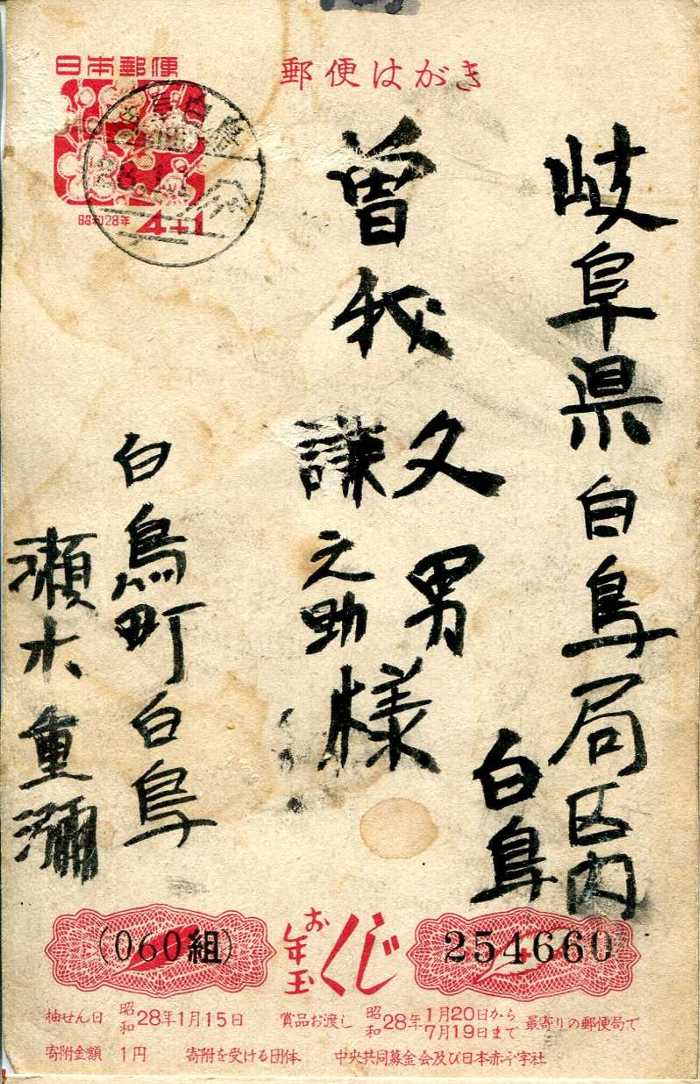 日本郵便
郵便はがき
昭和28年
4+1
岐阜県白鳥局区内
白鳥
曽我
久男
謙之助
様
白鳥町白鳥
瀬木重彌
(060組)
お年玉くじ
254660
抽せん日 昭和28年1月15日
賞品お渡し 昭和28年1月20日から7月19日まで 最寄りの郵便局で
寄附金額 1円 寄附を受ける団体 中央共同募金会及び日本赤十字社